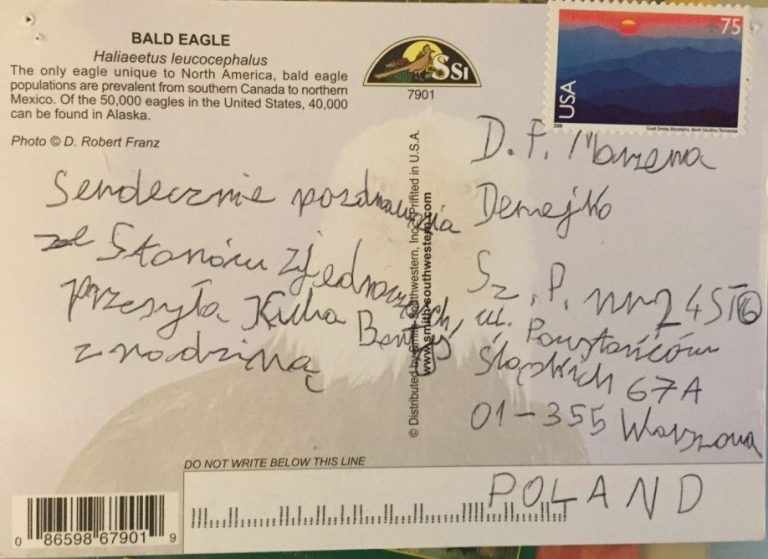 BALD EAGLE
Haliaeetus leucocephalus
The only eagle unique to North America, bald eagle
populations are prevalent from southern Canada to northern
Mexico. Of the 50,000 eagles in the United States, 40,000
can be found in Alaska.
Photo © D. Robert Franz
SSI
7901
75
USA
© Distributed by Smith-Southwestern, Inc. Printed in U.S.A.
www.smith-southwestern.com
Serdecznie pozdrowienia
ze Stanów Zjednoczonych
przesyła Kuba
z rodziną
D. P. Marzena
Demejko
Sz. P. nr 24
ul. Powstańców
Śląskich 67A
01-355 Warszawa
POLAND
DO NOT WRITE BELOW THIS LINE
0 86598 67901 9